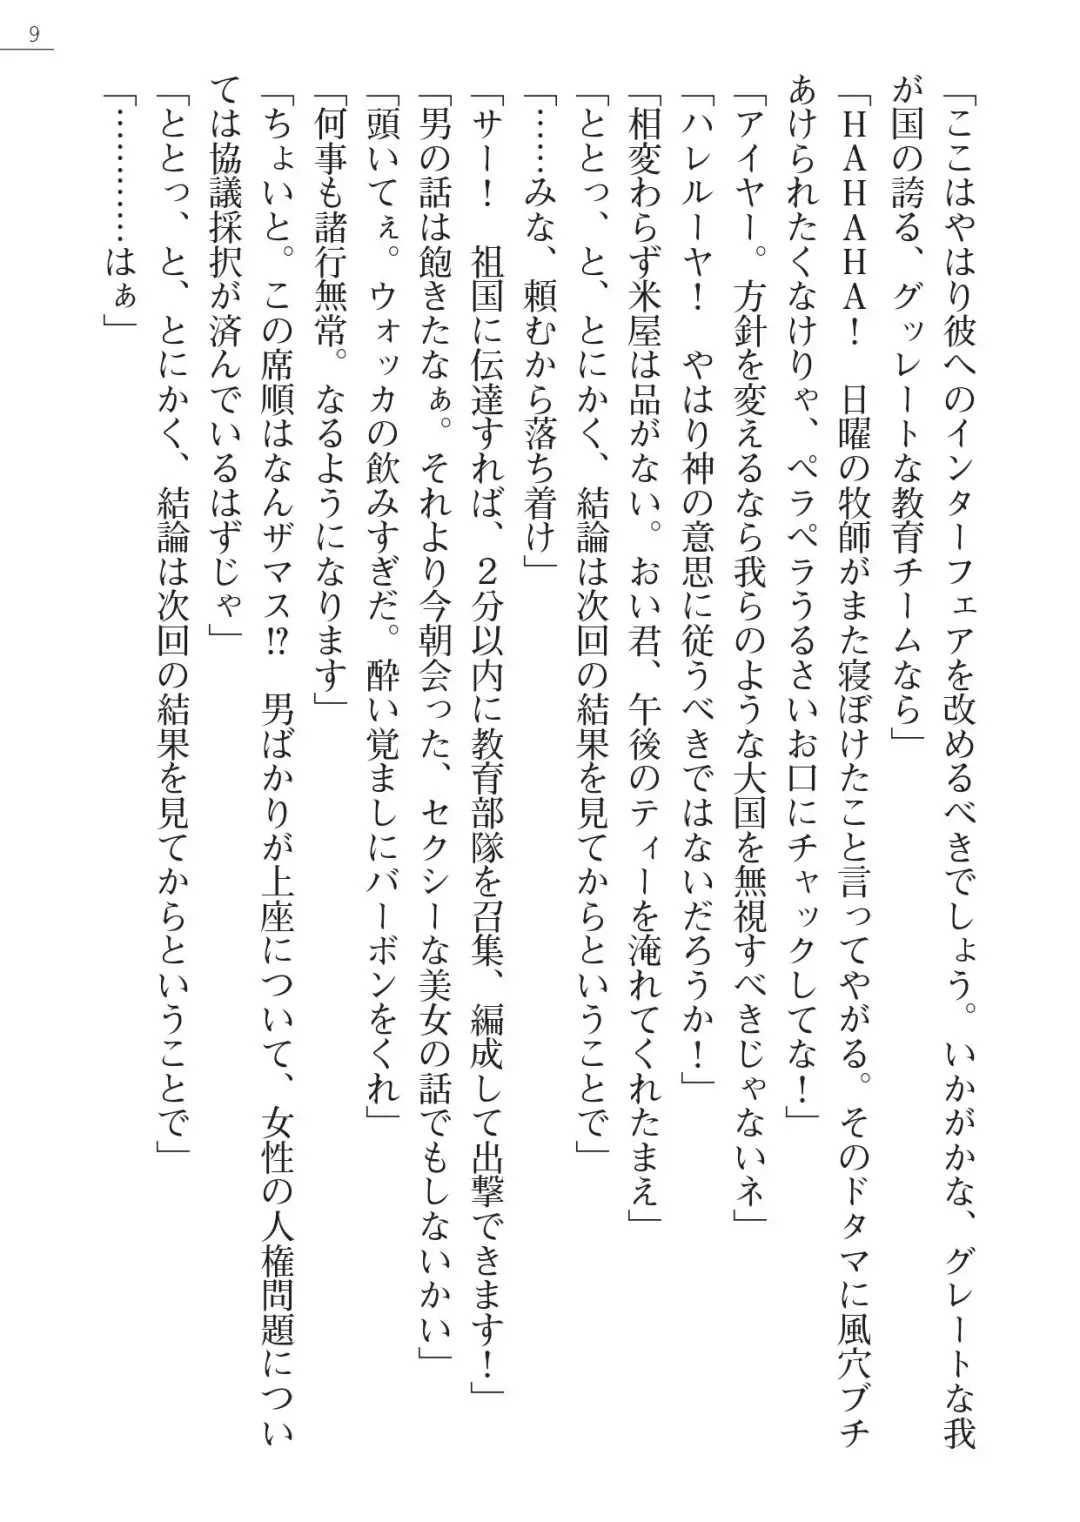 9
「ここはやはり彼へのインターフェアを改めるべきでしょう。いかがかな、グレートな我
が国の誇る、グッレートな教育チームなら」
「ＨＡＨＡＨＡ！　日曜の牧師がまた寝ぼけたこと言ってやがる。そのドタマに風穴ブチ
あけられたくなけりゃ、ペラペラうるさいお口にチャックしてな！」
「アイヤー。方針を変えるなら我らのような大国を無視すべきじゃないネ」
「ハレルーヤ！　やはり神の意思に従うべきではないだろうか！」
「相変わらず米屋は品がない。おい君、午後のティーを淹れてくれたまえ」
「ととっ、と、とにかく、結論は次回の結果を見てからということで」
「……みな、頼むから落ち着け」
「サー！　祖国に伝達すれば、２分以内に教育部隊を召集、編成して出撃できます！」
「男の話は飽きたなぁ。それより今朝会った、セクシーな美女の話でもしないかい」
「頭いてぇ。ウォッカの飲みすぎだ。酔い覚ましにバーボンをくれ」
「何事も諸行無常。なるようになります」
「ちょいと。この席順はなんザマス⁉　男ばかりが上座について、女性の人権問題につい
ては協議採択が済んでいるはずじゃ」
「ととっ、と、とにかく、結論は次回の結果を見てからということで」
「…………はぁ」